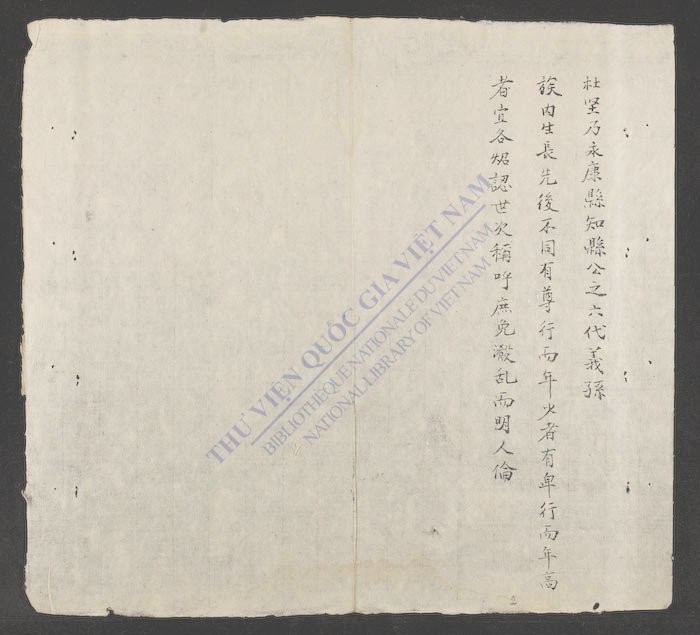 杜坚乃永康縣知縣公之六代義孫
族内生長先後不同有尊行而年少者有卑行而年高
者宜各炤認世次稱呼庶免淆乱而明人倫
THƯ VIỆN QUỐC GIA VIỆT NAM
BIBLIOTHÈQUE NATIONALE DU VIETNAM
NATIONAL LIBRARY OF VIETNAM
2